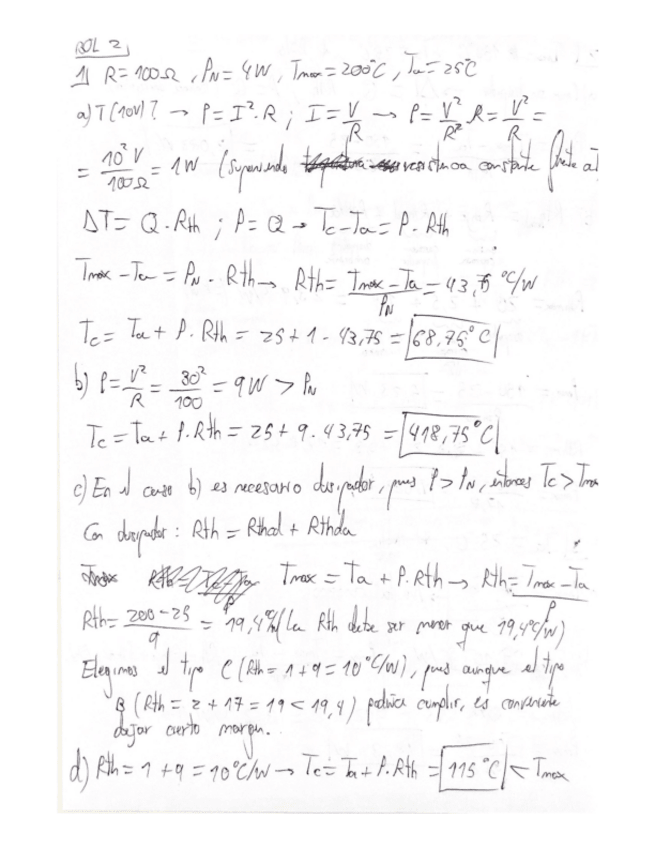 BOL 2
1) R = 100Ω, PN = 4W, Tmax = 200°C, Ta = 25°C
a) T(10V)? → P = I²·R ; I = V/R → P = V²/R² R = V²/R =
= 10² V/100Ω = 1W (suponiendo resistencia constante frente a T
ΔT = Q·Rth ; P = Q → Tc - Ta = P·Rth
Tmax - Ta = PN·Rth → Rth = Tmax - Ta/PN = 43,75 °C/W
Tc = Ta + P·Rth = 25 + 1·43,75 = 68,75°C
b) P = V²/R = 30²/100 = 9W > PN
Tc = Ta + P.Rth = 25 + 9.43,75 = 418,75°C
c) En el caso b) es necesario disipador, pues P > PN, entonces Tc > Tmax
Con disipador: Rth = Rthcd + Rthda
Tmax = Ta + P.Rth → Rth = Tmax - Ta/P
Rth = 200 - 25/9 = 19,4°C/W (La Rth debe ser menor que 19,4°C/W)
Elegimos el tipo C (Rth = 1 + 9 = 10°C/W), pues aunque el tipo
B (Rth = 2 + 17 = 19 < 19,4) podría cumplir, es conveniente
dejar cierto margen.
d) Rth = 1 + 9 = 10°C/W → Tc = Ta + P.Rth = 115°C < Tmax